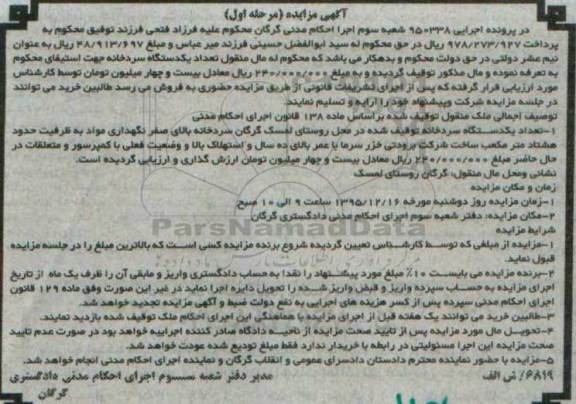 آگهی مزایده (مرحله اول)
در پرونده اجرایی ۹۵۰۳۳۸ شعبه سوم اجرا احکام مدنی گرگان محکوم علیه فرزاد فتحی فرزند توفیق محکوم به
پرداخت ۹۷۸/۲۷۳/۹۲۷ ریال در حق محکوم له سید ابوالفضل حسینی فرزند میر عباس و مبلغ ۴۸/۹۱۳/۶۹۷ ریال به عنوان
نیم عشر دولتی در حق دولت محکوم و بدهکار می باشد که محکوم له مال منقول تعداد یکدستگاه سردخانه جهت استیفای محکوم
به تعرفه نموده و مال مذکور توقیف گردیده و به مبلغ ۲۴۰/۰۰۰/۰۰۰ ریال معادل بیست و چهار میلیون تومان توسط کارشناس
مورد ارزیابی قرار گرفته که پس از اجرای تشریفات قانونی از طریق مزایده حضوری به فروش می رسد طالبین خرید می توانند
در جلسه مزایده شرکت و پیشنهاد خود را ارایه و تسلیم نمایند.
توصیف اجمالی ملک منقول توقیف شده براساس ماده ۱۳۸ قانون اجرای احکام مدنی
۱-تعداد یکدستگاه سردخانه توقیف شده در محل روستای لمسک گرگان سردخانه بالای صفر نگهداری مواد به ظرفیت حدود
هشتاد متر مکعب ساخت شرکت برودتی فزر سرما با عمر بالای ده سال و استهلاک بالا و وضعیت فعلی با کمپرسور و متعلقات در
حال حاضر مبلغ ۲۴۰/۰۰۰/۰۰۰ ریال معادل بیست و چهار میلیون تومان ارزش گذاری و ارزیابی گردیده است.
نشانی ومحل مال منقول: گرگان روستای لمسک
زمان و مکان مزایده
۱-زمان مزایده روز دوشنبه مورخه ۱۳۹۵/۱۲/۱۶ ساعت ۹ الی ۱۰ صبح
۲-مکان مزایده: دفتر شعبه سوم اجرای احکام مدنی دادگستری گرگان
شرایط مزایده
۱-مزایده از مبلغی که توسط کارشناس تعیین گردیده شروع برنده مزایده کسی است که بالاترین مبلغ را در جلسه مزایده
قبول نماید.
۲-برنده مزایده می بایست ۱۰٪ مبلغ مورد پیشنهاد را نقدا به حساب دادگستری واریز و مابقی آن را ظرف یک ماه از تاریخ
اجرای مزایده به حساب سپرده واریز و قبض واریز شده را تحویل دایره اجرا نماید در غیر این صورت وفق ماده ۱۲۹ قانون
اجرای احکام مدنی سپرده پس از کسر هزینه های اجرایی به نفع دولت ضبط و آگهی مزایده تجدید خواهد شد.
۳-طالبین خرید می توانند یک هفته قبل از اجرای مزایده با هماهنگی این اجرای احکام ملک توقیف شده بازدید نمایند.
۴-تحویل مال مورد مزایده پس از تایید صحت مزایده از ناحیه دادگاه صادر کننده اجراییه خواهد بود در صورت عدم تایید
صحت مزایده این اجرا مسئولیتی در رابطه با خریدار ندارد فقط مبلغ تودیع شده عودت خواهد شد.
۵-مزایده با حضور نماینده محترم دادستان دادسرای عمومی و انقلاب گرگان و نماینده اجرای احکام مدنی انجام خواهد شد.
۶۸۱۹/ش الف
مدیر دفتر شعبه سسوم اجرای احکام مدنی دادگستری
گرگان
ParsNamadData